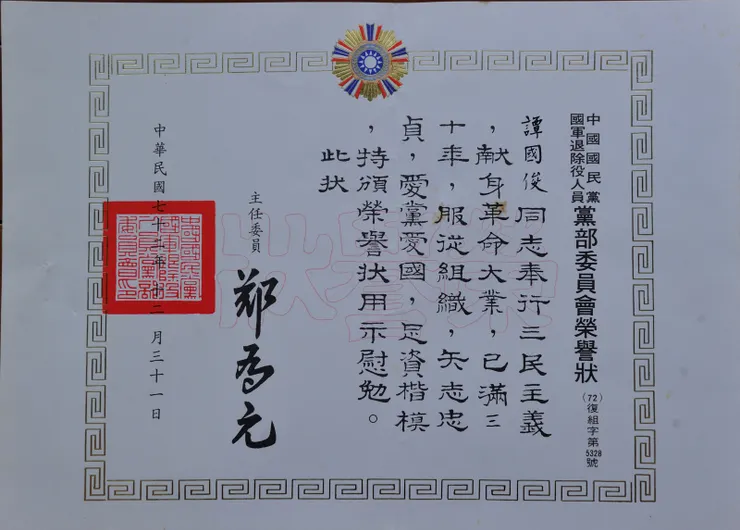 中國國民黨
國軍退除役人員
黨部委員會榮譽狀
(72)復組字第5328號
譚國俊同志奉行三民主義
，献身革命大業，已滿三
十年，服從組織，矢志忠
貞，愛黨愛國，足資楷模
，特頒榮譽狀用示慰勉。
此狀
主任委員
鄭為元
中華民國七十二年十二月三十一日
榮譽狀